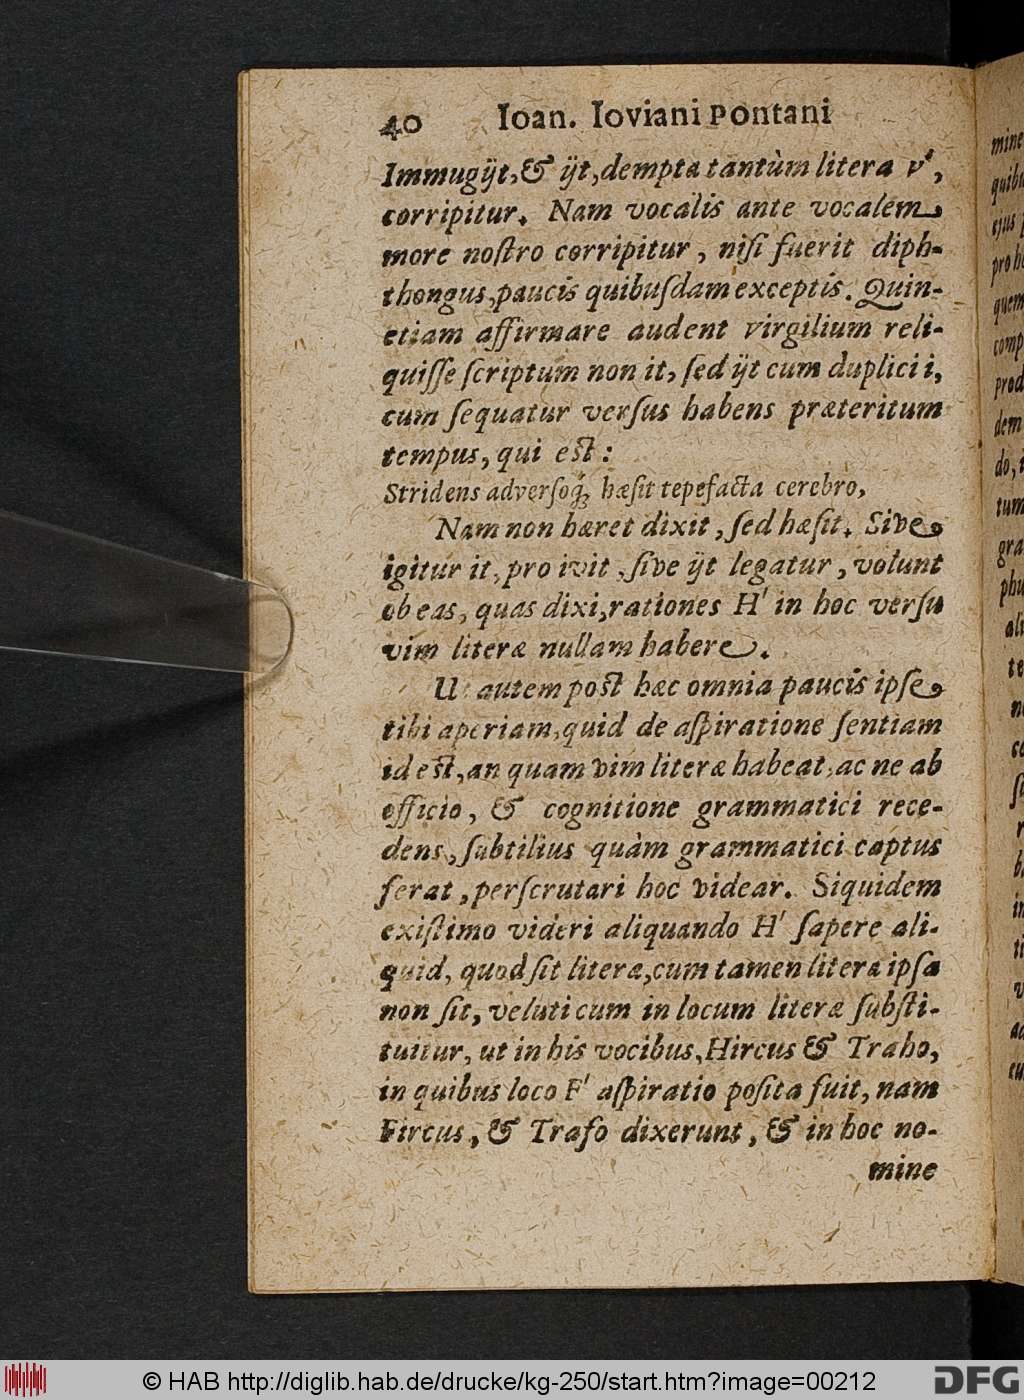 40 Ioan. Ioviani Pontani
Immugijt, & ijt, dempta tantùm litera v',
corripitur. Nam vocalis ante vocalem
more nostro corripitur, nisi fuerit diph-
thongus, paucis quibusdam exceptis. Quin-
etiam affirmare audent virgilium reli-
quisse scriptum non it, sed ijt cum duplici i,
cum sequatur versus habens præteritum
tempus, qui est:
Stridens adversoq́; hæsit tepefacta cerebro,
Nam non hæret dixit, sed hæsit. Sive
igitur it, pro ivit, sive ijt legatur, volunt
ob eas, quas dixi, rationes H' in hoc versu
vim literæ nullam habere.
Ut autem post hæc omnia paucis ipse
tibi aperiam, quid de aspiratione sentiam
id est, an quam vim literæ habeat, ac ne ab
officio, & cognitione grammatici rece-
dens, subtilius quàm grammatici captus
ferat, perscrutari hoc videar. Siquidem
existimo videri aliquando H' sapere ali-
quid, quod sit literæ, cum tamen litera ipsa
non sit, veluti cum in locum literæ substi-
tuitur, ut in his vocibus, Hircus & Traho,
in quibus loco F' aspiratio posita fuit, nam
Fircus, & Trafo dixerunt, & in hoc no-
mine
mine
quibu
ejus p
pro h
quem
comp
prod
dem
do, t
tum
gra
phu
ali
te
© HAB http://diglib.hab.de/drucke/kg-250/start.htm?image=00212
DFG